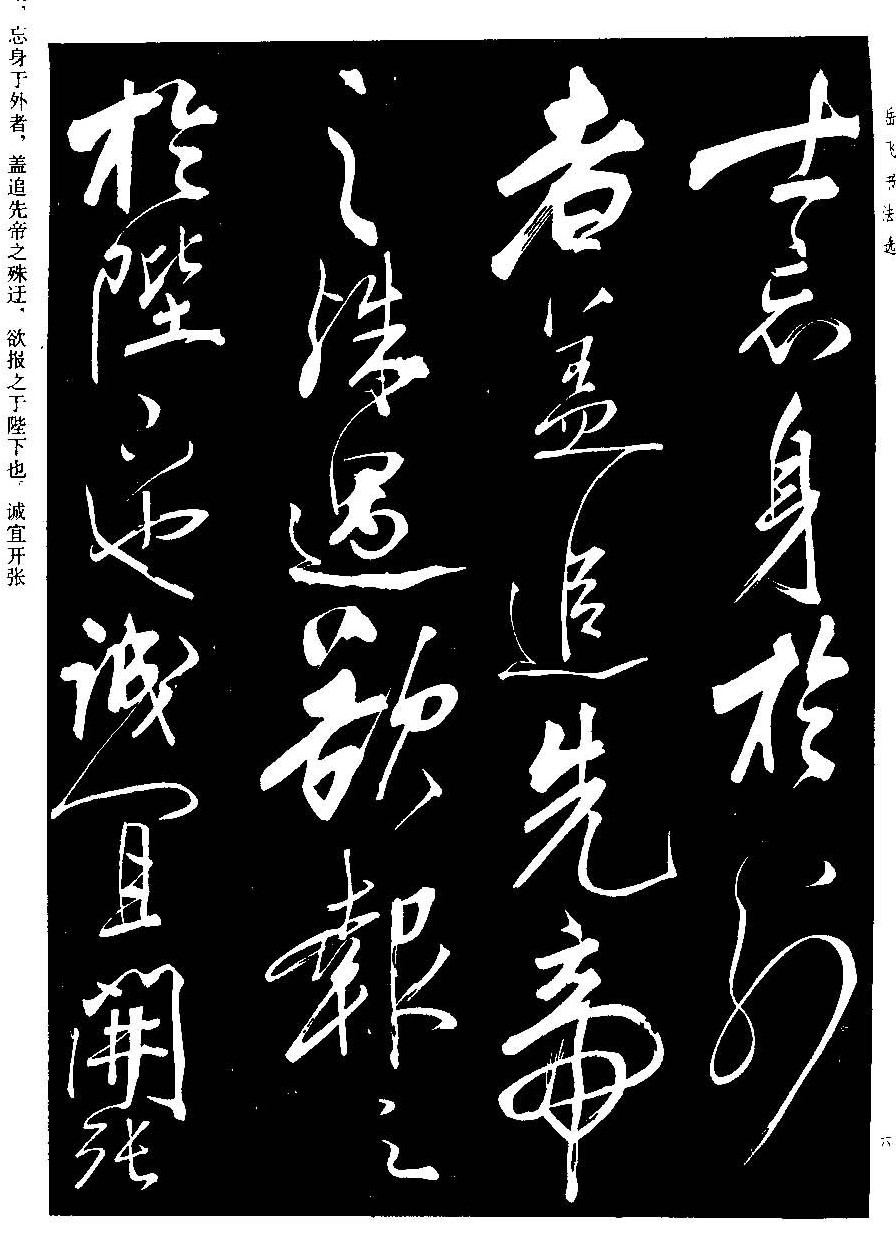 岳飞书法选
士忘身於外
者盖追先帝
之殊遇欲報之
於陛下也誠宜開張
忘身于外者，盖追先帝之殊迂，欲报之于陛下也。诚宜开张
六